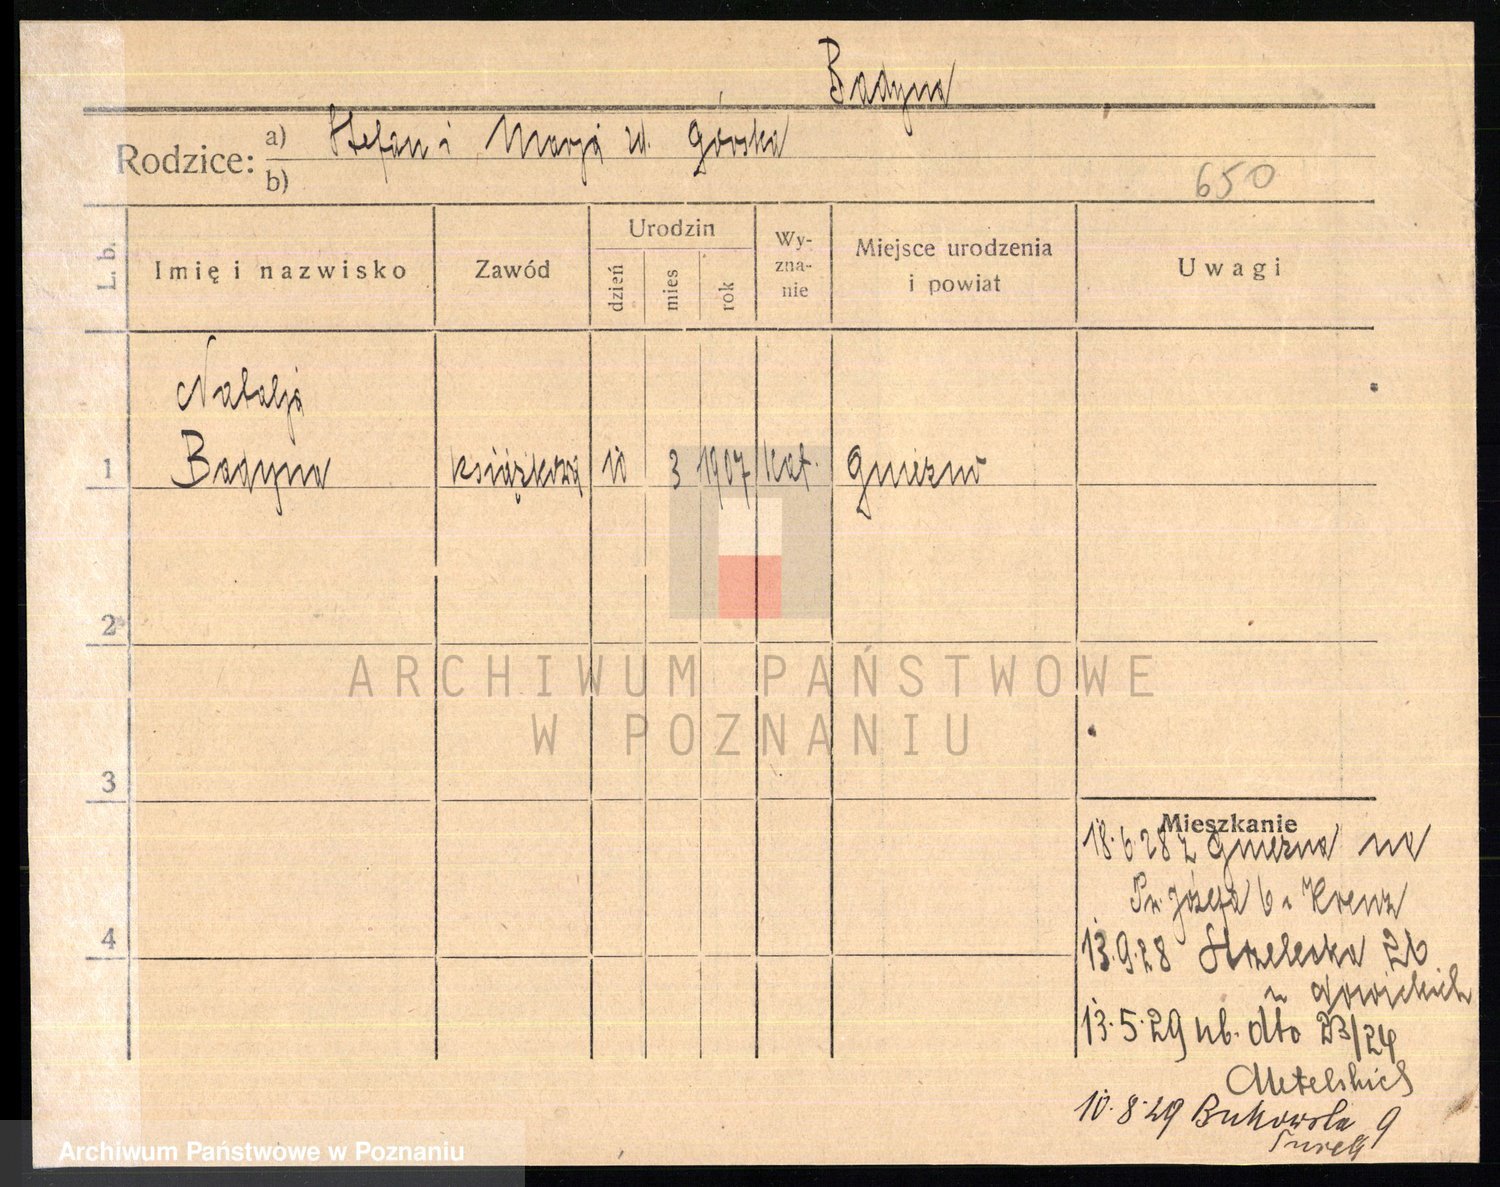 Badyna
Rodzice: a) Stefan i Marja z d. Górska
b)
650
L. b.
Imię i nazwisko
Zawód
Urodzin
dzień
mies
rok
Wy-
zna-
nie
Miejsce urodzenia
i powiat
Uwagi
Natalja
1 Badyna książkowa 10 3 1907 kat. Gniezno
2
3
4
ARCHIWUM PAŃSTWOWE
W POZNANIU
Mieszkanie
18.6.28 z Gniezna na
Józefa 6 u Krenz
13.9.28 Strzelecka 26
u
13.5.29 ub. dto 23/24
Metelskich
10.8.29 Bukowska 9
Archiwum Państwowe w Poznaniu